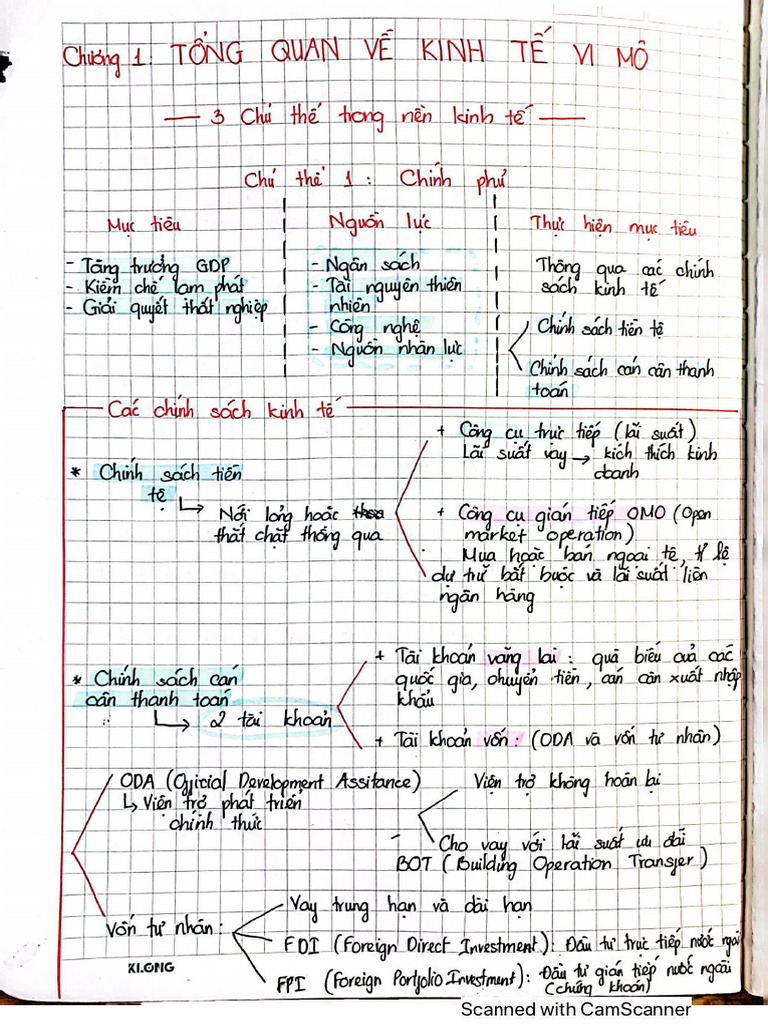 Chương 1: TỔNG QUAN VỀ KINH TẾ VI MÔ
3 Chủ thể trong nền kinh tế
Chủ thể 1: Chính phủ
Mục tiêu
- Tăng trưởng GDP
- Kiềm chế lạm phát
- Giải quyết thất nghiệp
Nguồn lực
- Ngân sách
- Tài nguyên thiên
nhiên
- Công nghệ
- Nguồn nhân lực
Thực hiện mục tiêu
Thông qua các chính
sách kinh tế
Chính sách tiền tệ
Chính sách cán cân thanh
toán
Các chính sách kinh tế
* Chính sách tiền
tệ
Nới lỏng hoặc
thắt chặt thông qua
+ Công cụ trực tiếp (lãi suất)
Lãi suất vay → kích thích kinh
doanh
+ Công cụ gián tiếp OMO (Open
market operation)
Mua hoặc bán ngoại tệ, tỉ lệ
dự trữ bắt buộc và lãi suất liên
ngân hàng
* Chính sách cán
cân thanh toán
2 tài khoản
+ Tài khoản vãng lai : quà biếu của các
quốc gia, chuyển tiền, cán cân xuất nhập
khẩu
+ Tài khoản vốn : (ODA và vốn tư nhân)
ODA (Official Development Assitance)
↳ Viện trợ phát triển
chính thức
Viện trợ không hoàn lại
Cho vay với lãi suất ưu đãi
BOT ( Building Operation Transfer )
Vốn tư nhân :
Vay trung hạn và dài hạn
FDI (Foreign Direct Investment): Đầu tư trực tiếp nước ngoài
FPI (Foreign Portfolio Investment): Đầu tư gián tiếp nước ngoài
(chứng khoán)
KLONG
Scanned with CamScanner